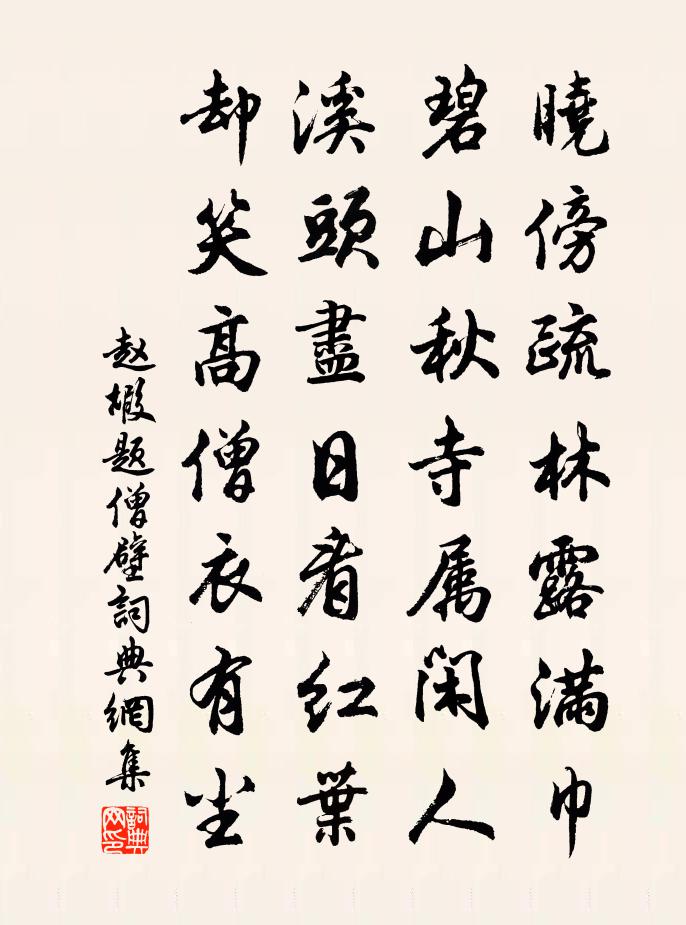 曉傍疏林露滿巾
碧山秋寺属閑人
溪頭盡日看红葉
却笑高僧衣有尘
赵嘏题僧壁詞典網集
詞典網印